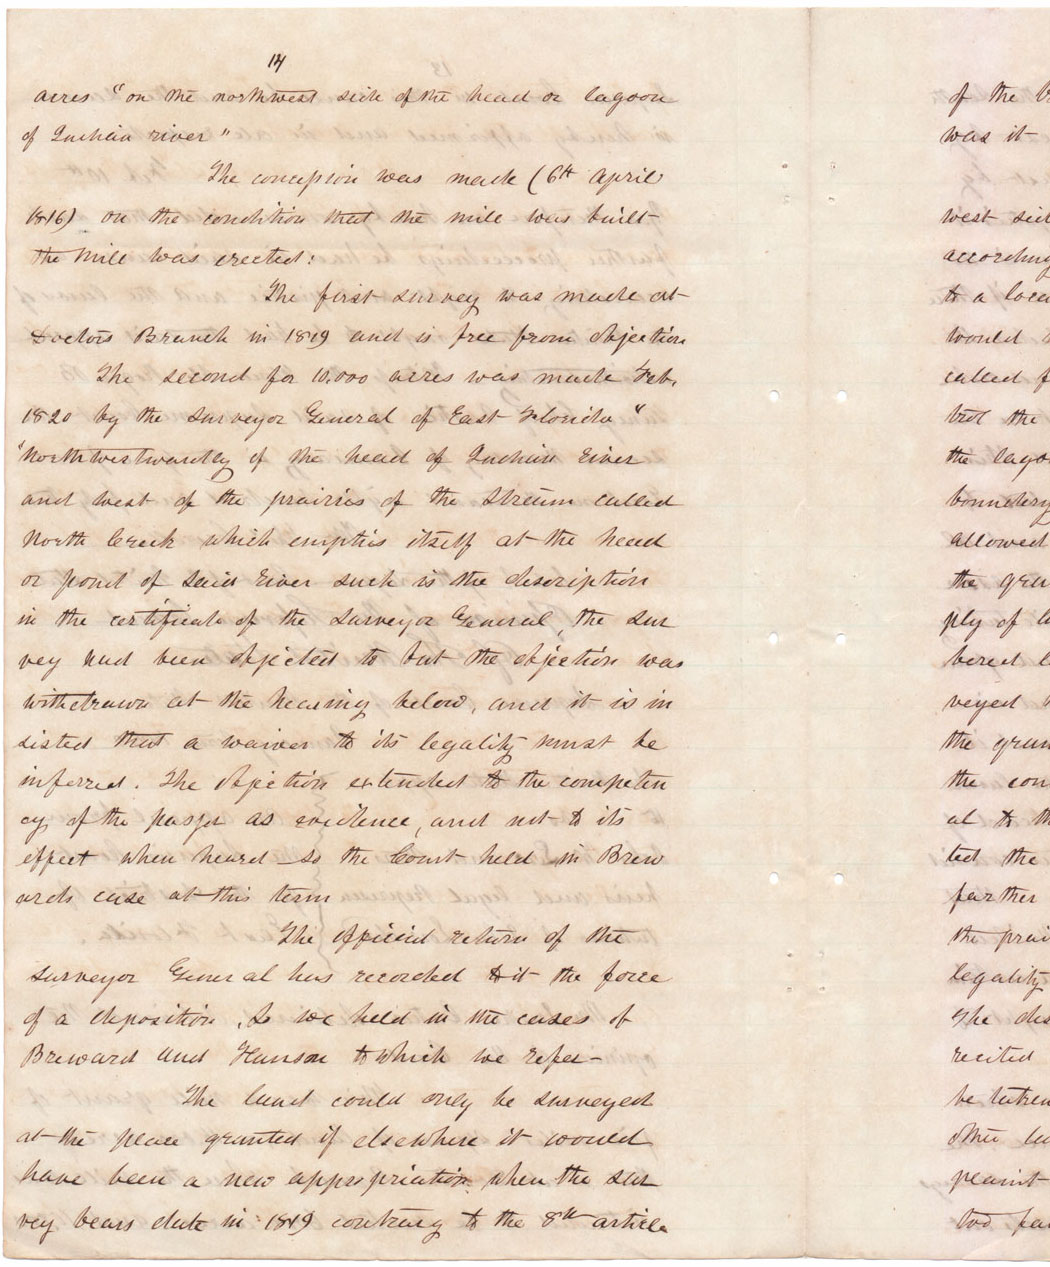 14
acres "on the northwest side of the head or lagoon
of Indian river"
The concession was made (6th April
1816) on the condition that the mill was built
the mill was erected:
The first survey was made at
Doctors Branch in 1819 and is free from objection
The second for 10,000 acres was made Feb.
1820 by the surveyor General of East Florida "
"Northwestwardly of the head of Indian River
and west of the prairies of the Stream called
North Creek which empties itself at the head
or pond of said River such is the description
in the certificate of the surveyor General, the sur
vey had been objected to but the objection was
withdrawn at the hearing below, and it is in
sisted that a waiver to its legality must be
inferred. The objection extended to the competen
cy of the paper as evidence, and not to its
effect when heard So the Court held in Brew
ards case at this term
The official return of the
surveyor General has recorded to it the force
of a deposition. So we held in the cases of
Breward and Hanson to which we refer-
The land could only be surveyed
at the place granted if elsewhere it would
have been a new appropriation when the sur
vey bears date in 1819 contrary to the 8th article
of the
was it
west
according
to a
would
called
the
the
allowed
the
ply of
veyed
the
the con
al to th
ted the
further
the
legality
The des
recited
be taken